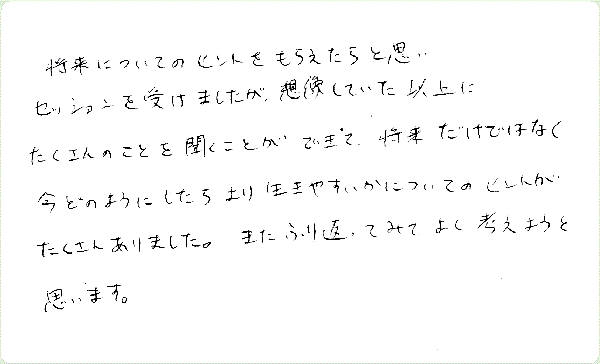 将来についてのヒントをもらえたらと思い
セッションを受けましたが、想像していた以上に
たくさんのことを聞くことができて、将来だけではなく
今どのようにしたらより生きやすいかについてのヒントが
たくさんありました。またふり返ってみてよく考えようと
思います。